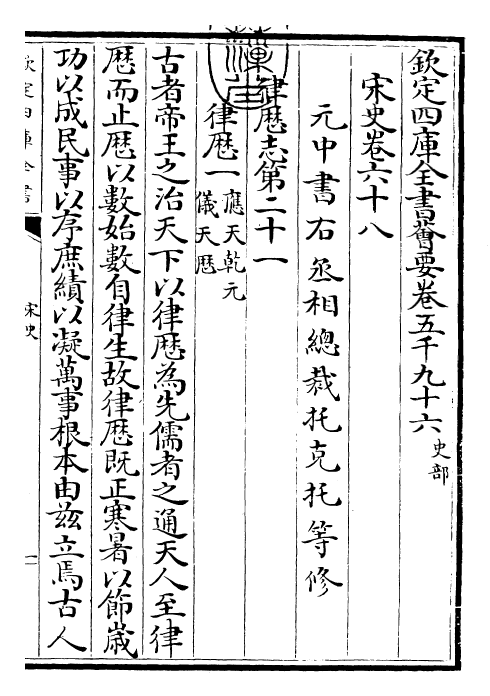 欽定四庫全書薈要卷五千九十六史部
宋史卷六十八
元中書右丞相總裁托克托等修
律厯志第二十一
律厯一應天乾元
儀天厯
古者帝王之治天下以律厯為先儒者之通天人至律
厯而止厯以數始數自律生故律厯既正寒暑以節歳
功以成民事以序庶績以凝萬事根本由兹立焉古人
欽定四庫全書
宋史
一